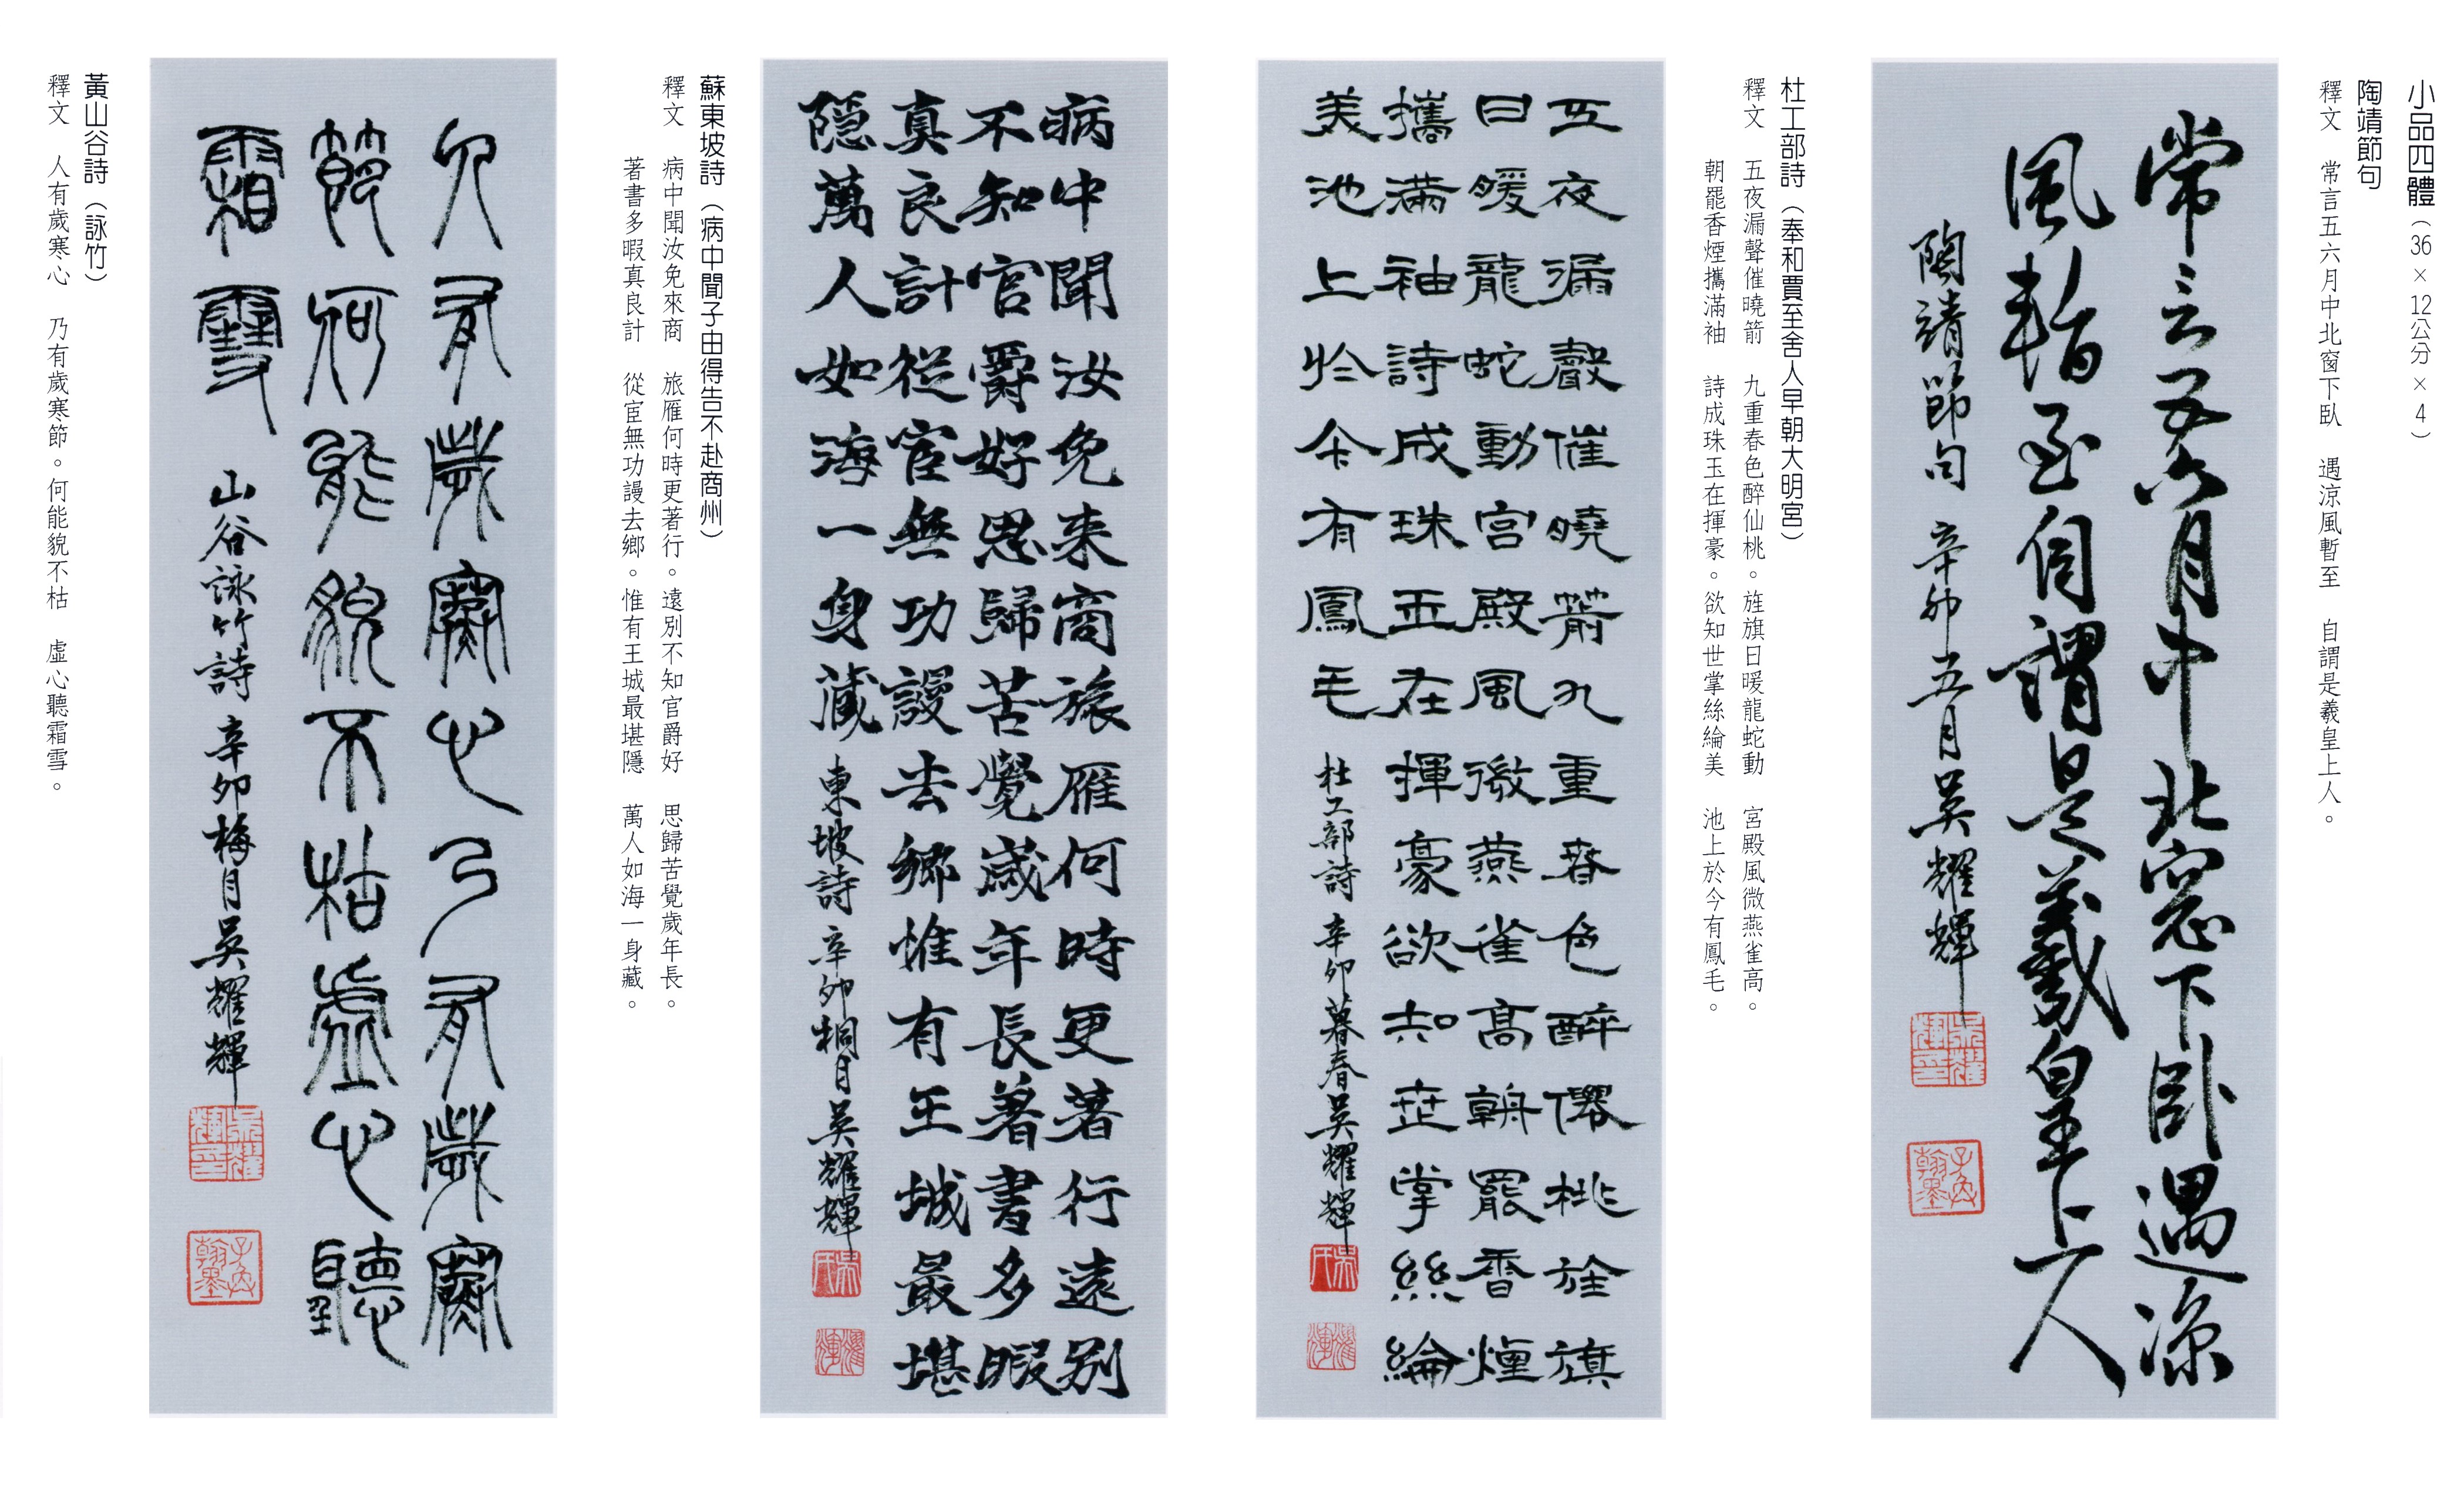 小品四體（36×12公分×4）
陶靖節句
釋文　常言五六月中北窗下臥　遇涼風暫至　自謂是羲皇上人。
常言五六月中北窓下臥遇凉
風暫至自謂是羲皇上人
陶靖節句　辛卯五月吳耀輝
吳耀輝印
杜工部詩（奉和賈至舍人早朝大明宮）
釋文　五夜漏聲催曉箭　九重春色醉仙桃。旌旗日暖龍蛇動　宮殿風微燕雀高。
朝罷香煙攜滿袖　詩成珠玉在揮豪。欲知世掌絲綸美　池上於今有鳳毛。
五夜漏聲催曉箭九重春色醉僊桃旌旗
日暖龍蛇動宮殿風微燕雀高朝罷香煙
攜滿袖詩成珠玉在揮豪欲知世掌絲綸
美池上於今有鳳毛　杜工部詩　辛卯暮春吳耀輝
吳氏
耀輝
病中聞汝免来商旅雁何時更著行遠別
不知官爵好思歸苦覺歲年長著書多暇
真良計從宦無功謾去鄉惟有王城最堪
隱萬人如海一身藏　東坡詩　辛卯桐月吳耀輝
吳氏
耀輝
蘇東坡詩（病中聞子由得告不赴商州）
釋文　病中聞汝免來商　旅雁何時更著行。遠別不知官爵好　思歸苦覺歲年長。
著書多暇真良計　從宦無功謾去鄉。惟有王城最堪隱　萬人如海一身藏。
人有歲寒心乃有歲寒
節何能貌不枯虛心聽
霜雪　山谷詠竹詩　辛卯梅月吳耀輝
吳耀輝印
黃山谷詩（詠竹）
釋文　人有歲寒心　乃有歲寒節。何能貌不枯　虛心聽霜雪。